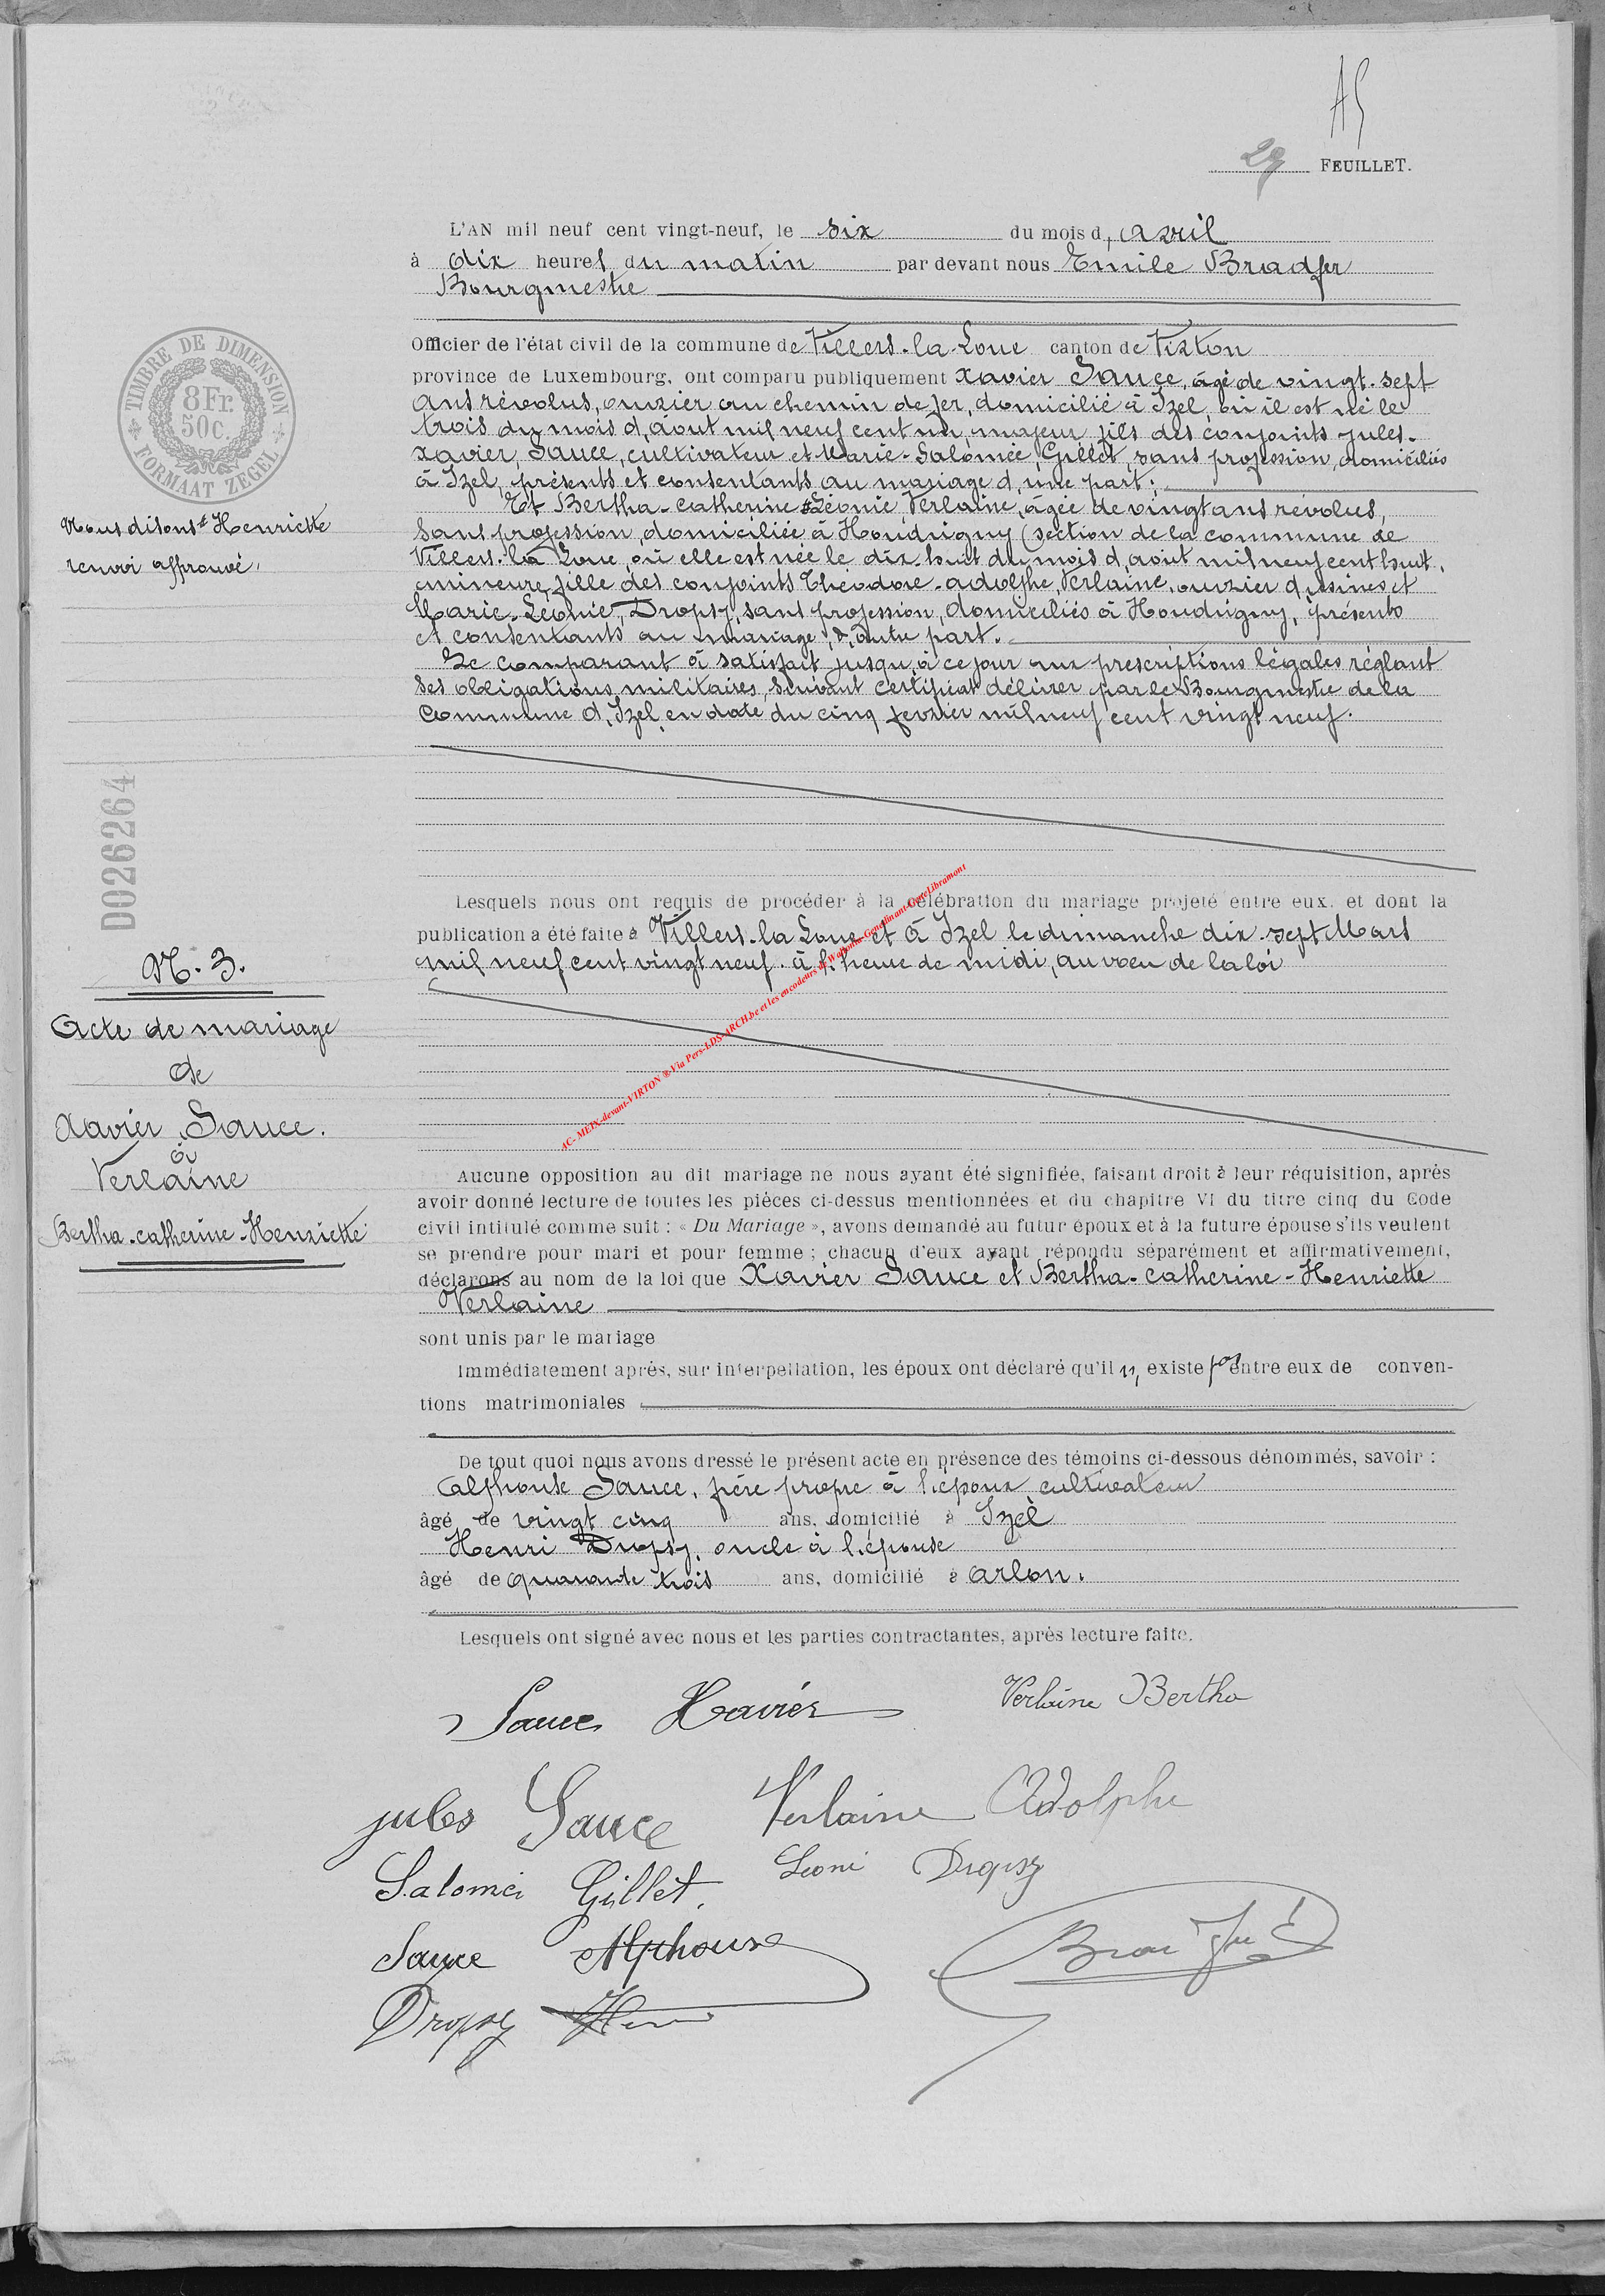 29 FEUILLET.
L'AN mil neuf cent vingt-neuf, le six du mois d, avril
à dix heures du matin par devant nous Emile Bradfer
Bourgmestre
Officier de l'état civil de la commune de Villers-la-Loue canton de Virton
province de Luxembourg, ont comparu publiquement Xavier Sauce, âgé de vingt-sept
ans révolus, ouvrier au chemin de fer, domicilié à Izel, où il est né le
trois du mois d, aout mil neuf cent un, majeur fils des conjoints Jules-
Xavier, Sauce, cultivateur et Marie-Salomée, Gillet, sans profession, domiciliés
à Izel, présents et consentants au mariage d, une part;
Et Bertha-Catherine # Léonie, Verlaine, âgée de vingt ans révolus,
sans profession, domiciliée à Houdrigny (section de la commune de
Villers-la-Loue, où elle est née le dix-huit du mois d, aout mil neuf cent huit,
mineure, fille des conjoints Théodore-Adolphe, Verlaine, ouvrier d, usines et
Marie-Léonie, Dropsy, sans profession, domiciliés à Houdrigny, présents
et consentants au mariage, d, autre part.
Le comparant à satisfait jusqu,à ce jour aux prescriptions légales réglant
ses obligations militaires, suivant certificat délivrer par le Bourgmestre de la
Commune d, Izel, en date du cinq fevrier mil neuf cent vingt neuf.
TIMBRE DE DIMENSION
8 Fr.
50 c.
FORMAAT ZEGEL
Nous disons # Henriette
renvoi approuvé,
D026264
Lesquels nous ont requis de procéder à la célébration du mariage projeté entre eux, et dont la
publication a été faite à Villers-la-Loue et à Izel le dimanche dix-sept Mars
mil neuf cent vingt neuf. à l, heure de midi, au vœu de la loi
AC- MEIX-devant-VIRTON ® Via Pers-LDS-ARCH.be et les encodeurs
N. 3.
Acte de mariage
de
Xavier, Sauce.
à
Verlaine
Bertha-catherine-Henriette
Aucune opposition au dit mariage ne nous ayant été signifiée, faisant droit à leur réquisition, après
avoir donné lecture de toutes les pièces ci-dessus mentionnées et du chapitre VI du titre cinq du Code
civil intitulé comme suit : « Du Mariage », avons demandé au futur époux et à la future épouse s'ils veulent
se prendre pour mari et pour femme ; chacun d'eux ayant répondu séparément et affirmativement,
déclarons au nom de la loi que Xavier Sauce et Bertha-Catherine-Henriette
Verlaine
sont unis par le mariage
Immédiatement après, sur interpellation, les époux ont déclaré qu'il n, existe pas entre eux de conven-
tions matrimoniales
De tout quoi nous avons dressé le présent acte en présence des témoins ci-dessous dénommés, savoir :
Alphonse Sauce, frère propre à l,époux cultivateur
âgé de vingt cinq ans, domicilié à Izel
Henri Dropsy, oncle à l,épouse
âgé de quarante trois ans, domicilié à Arlon.
Lesquels ont signé avec nous et les parties contractantes, après lecture faite.
Sauce Xavier Verlaine Bertha
jules Sauce Verlaine Adolphe
Salomé Gillet. Leoni Dropsy
Sauce Alphonse
Dropsy Henri